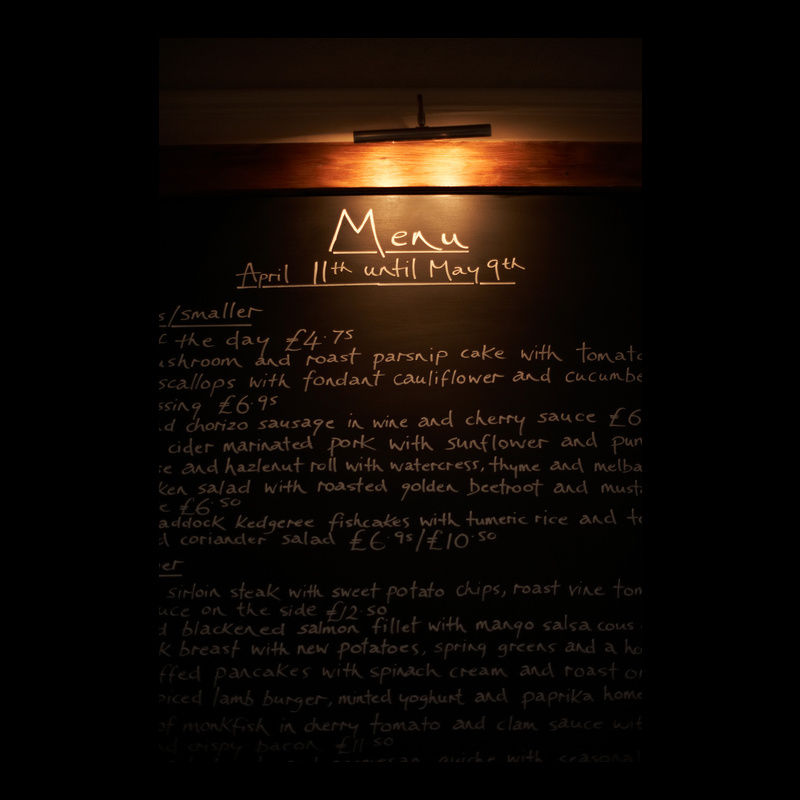 Menu
April 11th until May 9th
s/smaller
the day £4.75
and roast parsnip cake with
scallops with fondant cauliflower and
£6.95
chorizo sausage in wine and cherry sauce £6
cider marinated pork with sunflower and
and hazlenut roll with watercress, thyme and melba
salad with roasted golden beetroot and
£6.50
kedgeree fishcakes with tumeric rice and
coriander salad £6.95/£10.50
sirloin steak with sweet potato chips, roast vine
on the side £12.50
blackened salmon fillet with mango salsa cous
breast with new potatoes, spring greens and a
pancakes with spinach cream and roast
lamb burger, minted yoghurt and paprika
of monkfish in cherry tomato and clam sauce
crispy bacon £11.50
quiche with seasonal